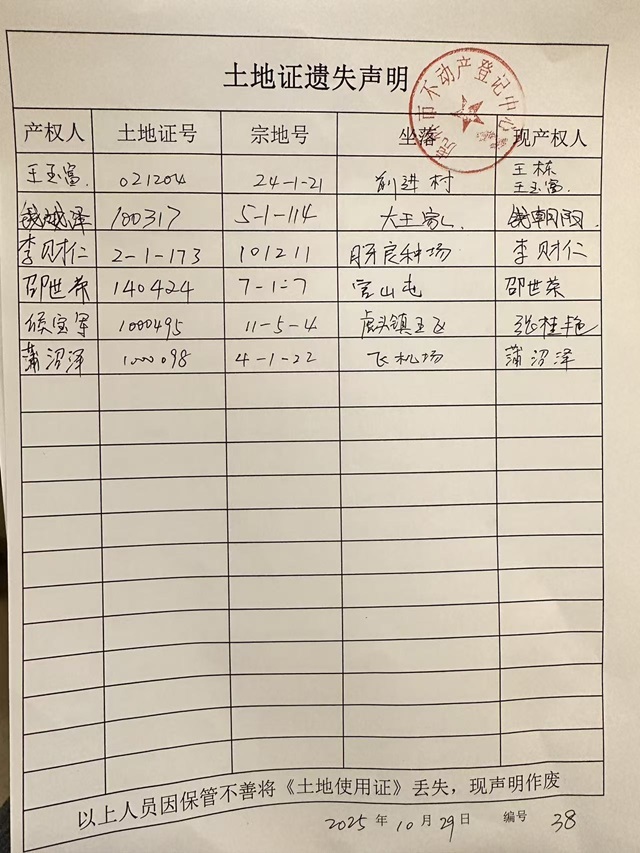 土地证遗失声明
虎林市不动产登记中心
产权人 土地证号 宗地号 坐落 现产权人
王玉富. 021204 24-1-21 前进村 王栋 王玉富.
100317 5-1-114 大王家 朝阳
李财仁 2-1-173 101211 良种场 李财仁
邵世荣 140424 7-1-7 宝山屯 邵世荣
侯宝军 1000495 11-5-4 虎头镇 张桂艳
蒲沼泽 1000098 4-1-22 飞机场 蒲沼泽
以上人员因保管不善将《土地使用证》丢失，现声明作废
2025 年 10 月 29 日 编号 38